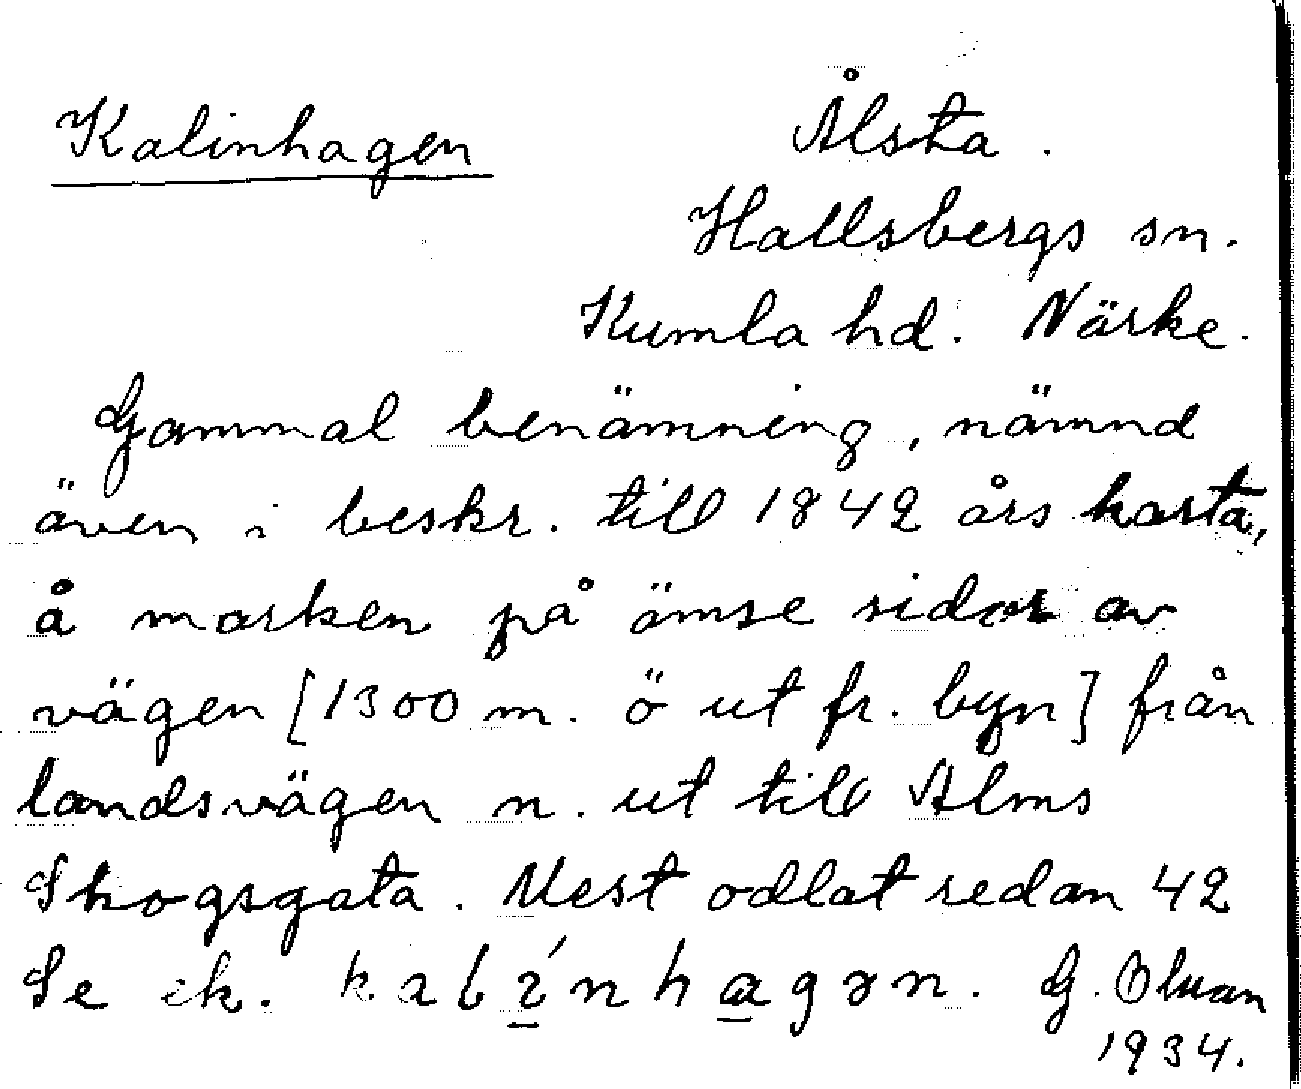 Kalinhagen
Ålsta.
Hallsbergs sn.
Kumla hd. Närke.
Gammal benämning, nämnd
även i beskr. till 1842 års karta,
å marken på ömse sidor av
vägen [1300 m. ö ut fr. byn] från
landsvägen n. ut till Alms
Skogsgata. Mest odlat sedan 42
Se ek. kalínhagən. G.
1934.